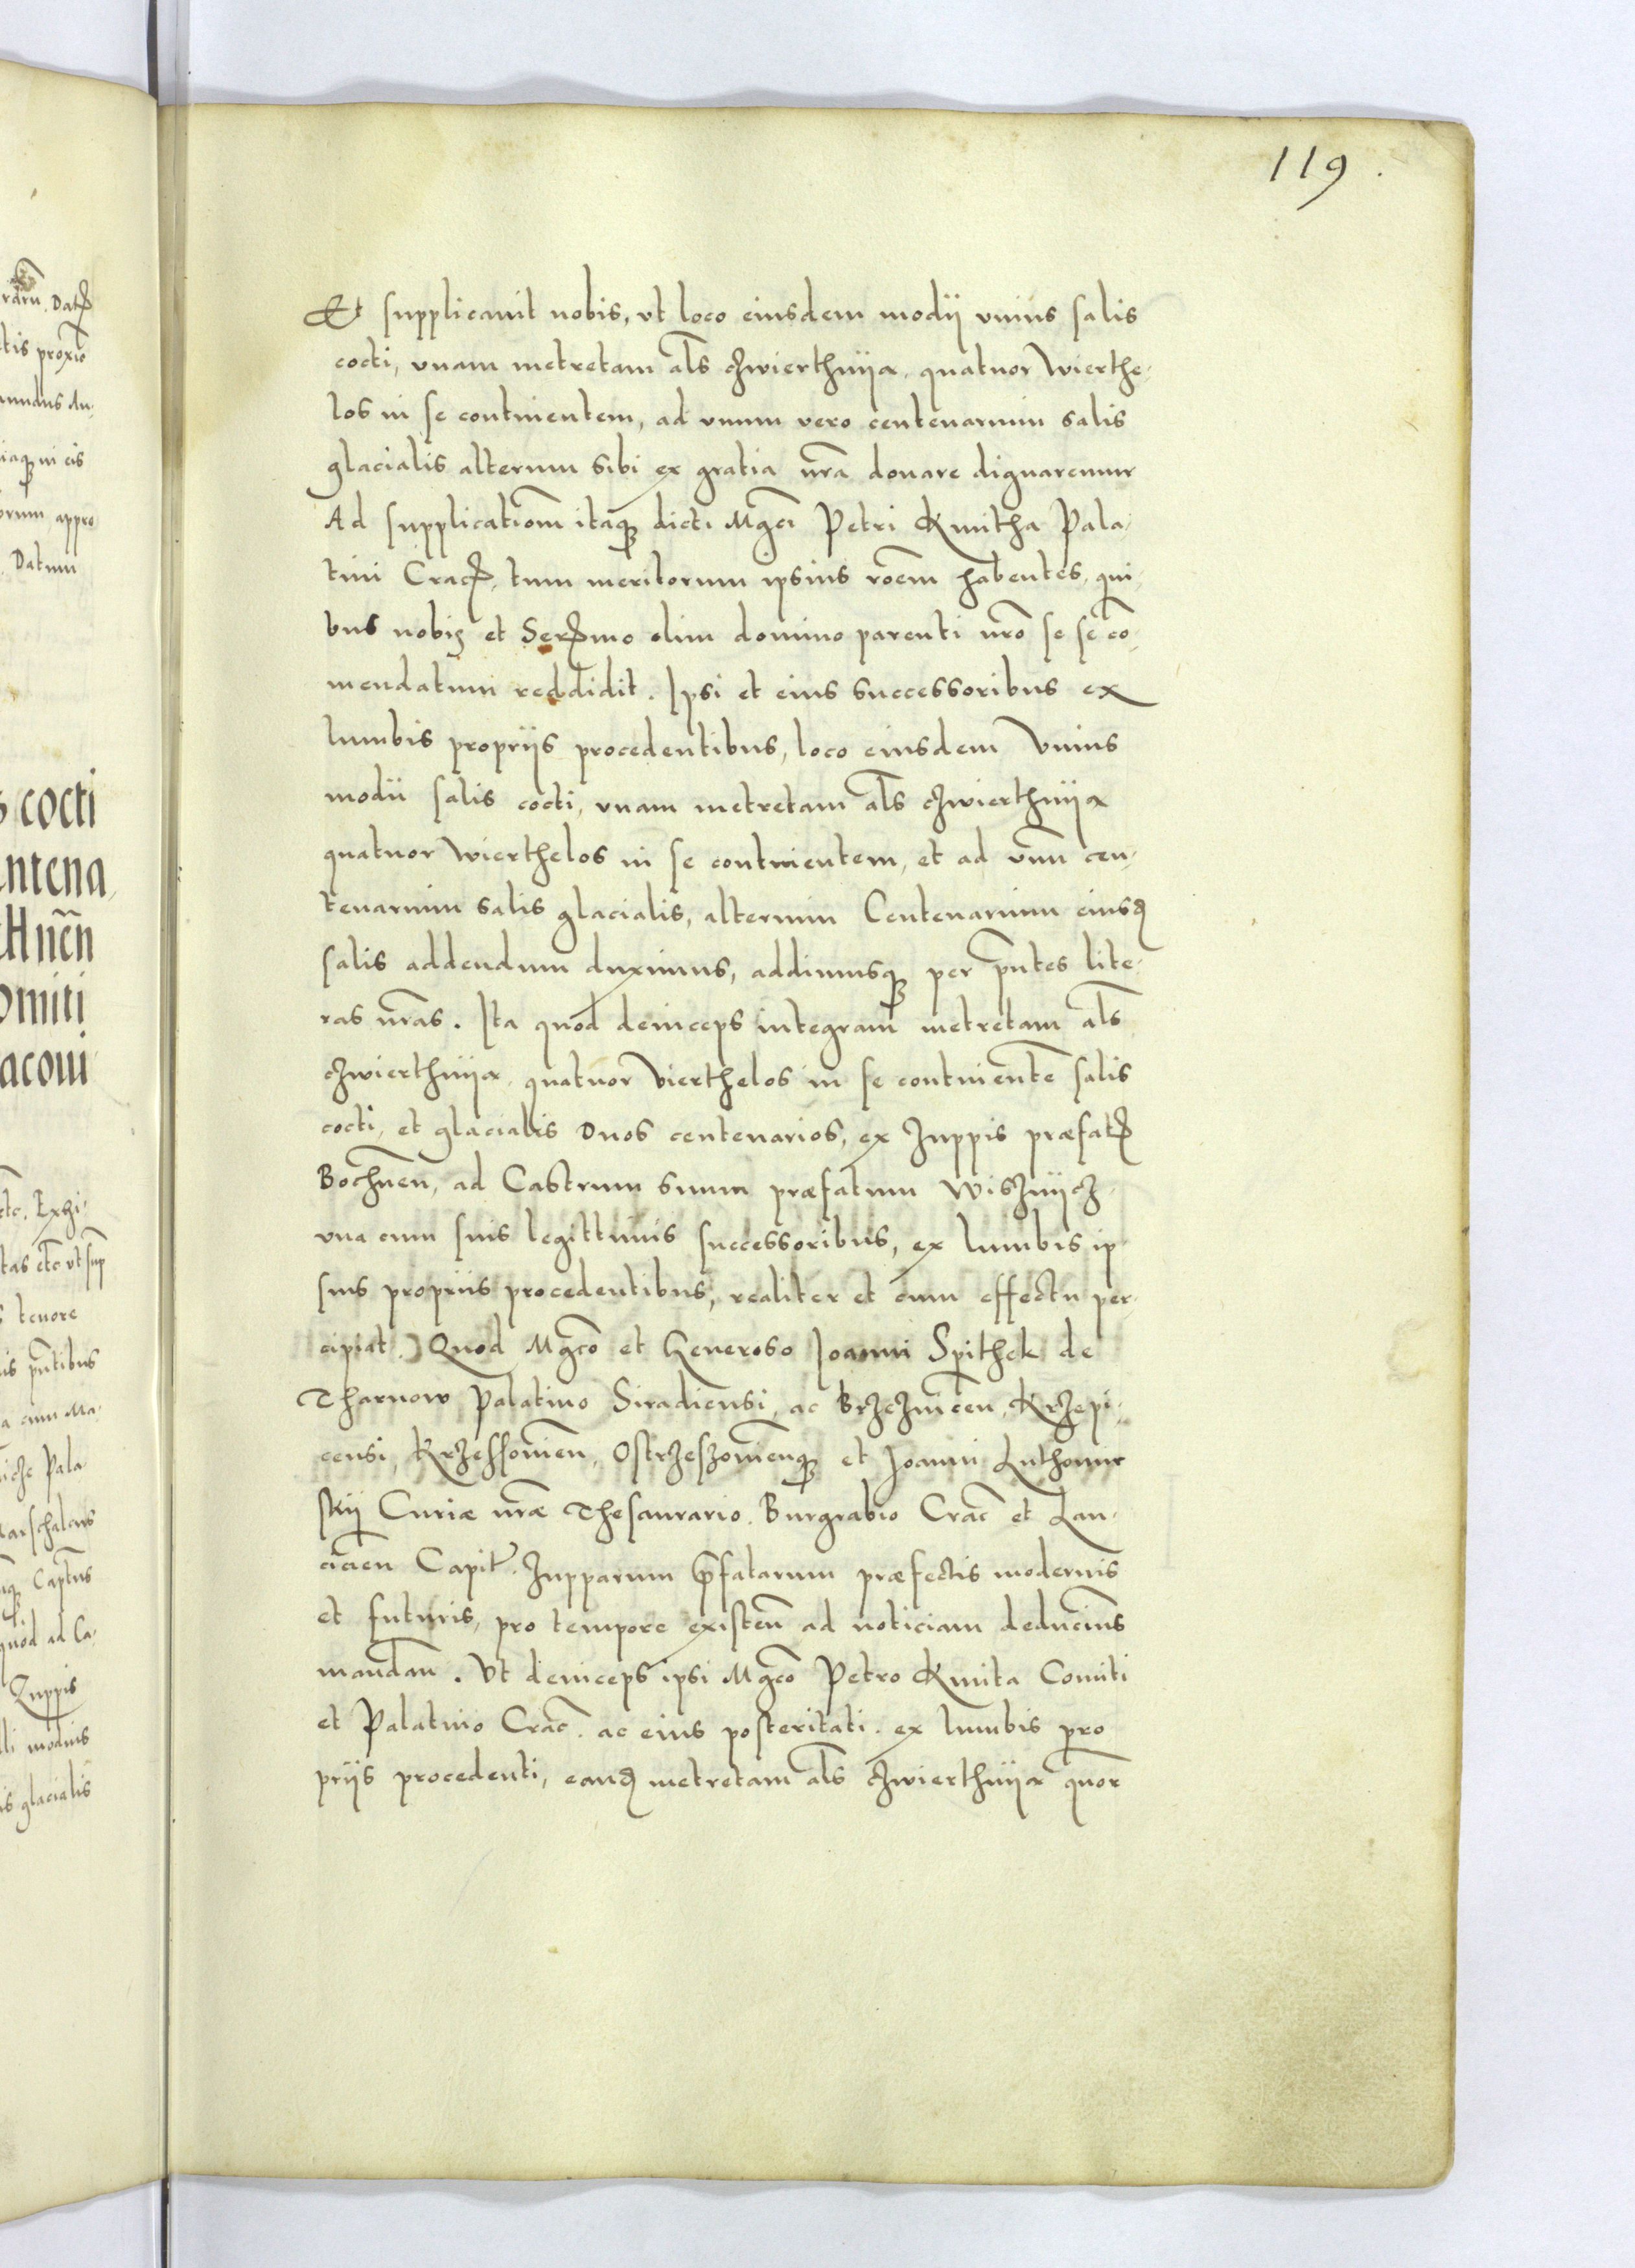 119.
Et supplicauit nobis, vt loco eiusdem modij vnius salis
cocti, vnam metretam al̃s czwierthnija, quatuor Wierthe-
los in se continentem, ad vnum vero centenarium salis
glacialis alterum sibi ex gratia nr̃a donare dignaremur
Ad supplicatiom̃ itaq̃ dicti Mgci Petri Kmitha Pala-
tini Crac̃, tum meritorum ipsius roẽm habentes, qui-
bus nobis et Ser̃mo olim domino parenti nr̃o se se co-
mendatum reddidit. Ipsi et eius successoribus ex
lumbis proprijs procedentibus, loco eiusdem Vnius
modii salis cocti, vnam metretam al̃s czwierthnija
quatuor Wierthelos in se continentem, et ad vnũ cen-
tenarium salis glacialis, alterum Centenarium eiusd̃
salis addendum duximus, addimusq̃ per pñtes lite-
ras nr̃as. Ita quod deinceps integram metretam al̃s
czwierthnija, quatuor Vierthelos in se continentẽ salis
cocti, et glacialis Duos centenarios, ex zuppis præfat̃
Bochneñ, ad Castrum suum præfatum Wisznijcz
vna cum suis legittimis successoribus, ex lumbis ip-
sius propriis procedentibus, realiter et cum effectu per-
cipiat.) Quod Mgco et Generoso Joanni Spithek de
Tharnow Palatino Siradiensi, ac Brzezniceñ, Krzepi-
censi, Krzessouieñ, Ostrzeszouieñq̃ et Joanni Luthomir
skij Curiæ nr̃æ Thesaurario, Burgrabio Crac̃ et Lan-
cicieñ Capit̃. Zupparum p̃fatarum præfectis modernis
et futuris, pro tempore existeñ ad noticiam deducimus
mandañ. Vt deinceps ipsi Mgco Petro Kmita Comiti
et Palatino Crac̃. ac eius posteritati. ex lumbis pro
prijs procedenti, eand̃ metretam al̃s czwierthnija quor̃